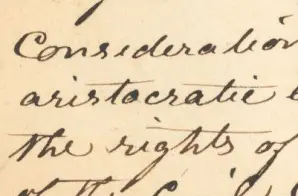 Consideration
aristocratic
the rights of
of the